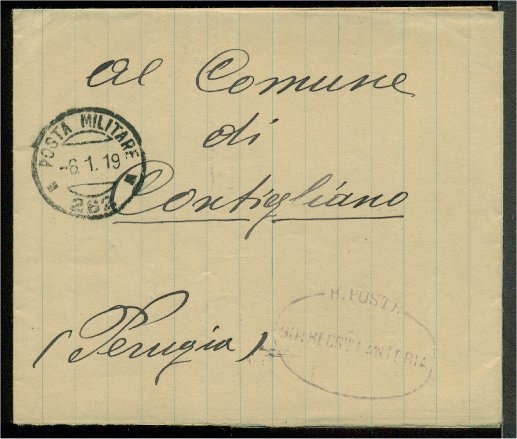 Al Comune
di
POSTA MILITARE
-6.1.19
262
Contigliano
(Perugia)
R. POSTA
FANTERIA